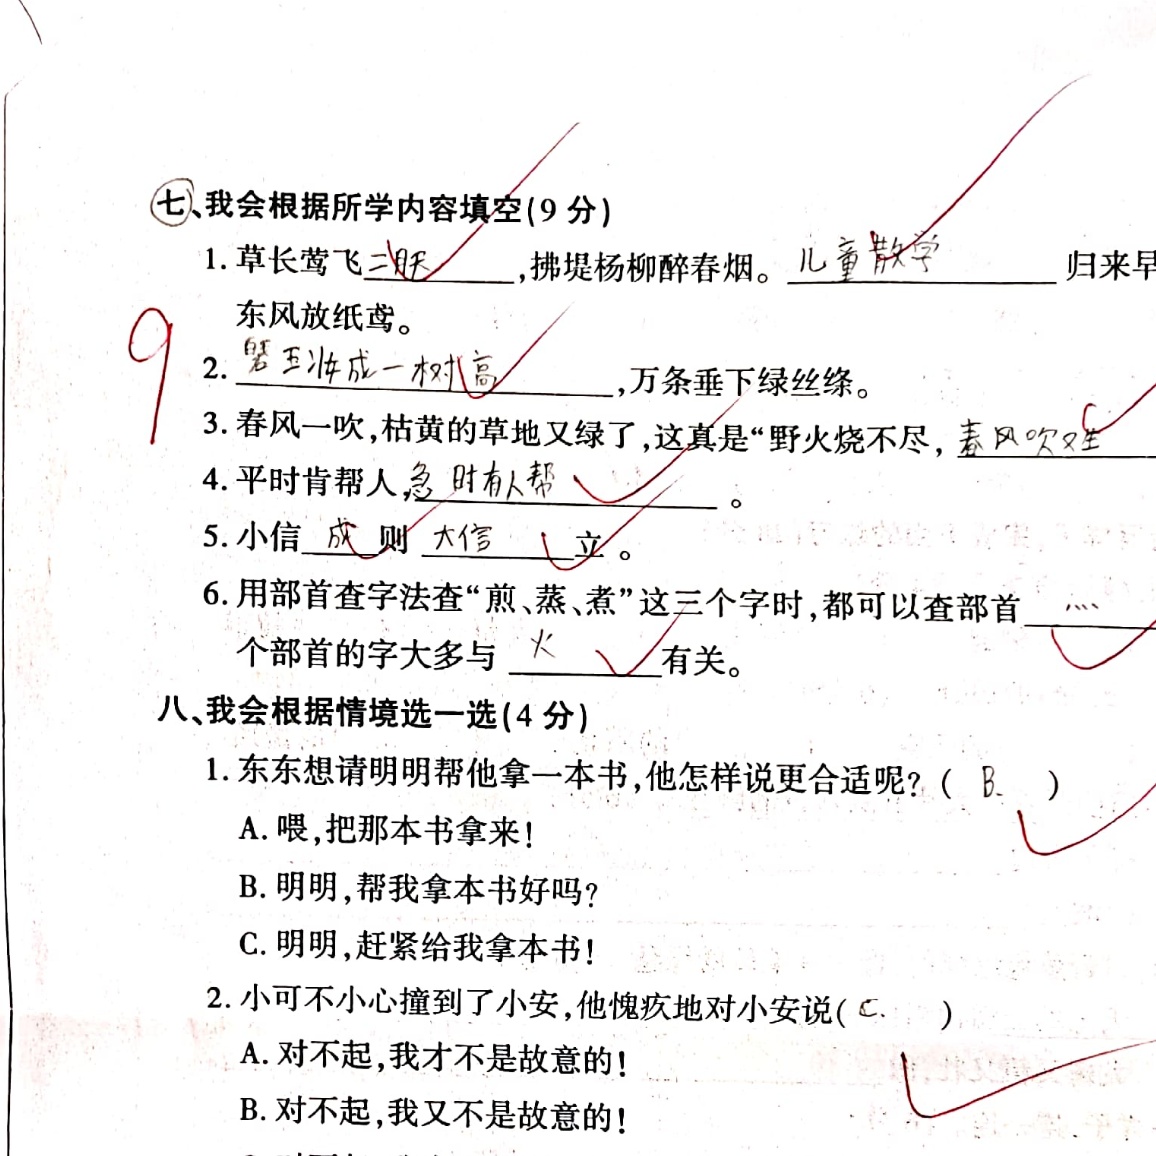 七、我会根据所学内容填空(9分)
1. 草长莺飞二月天,拂堤杨柳醉春烟。儿童散学归来早
东风放纸鸢。
9
2. 碧玉妆成一树高,万条垂下绿丝绦。
3. 春风一吹,枯黄的草地又绿了,这真是“野火烧不尽,春风吹又生
4. 平时肯帮人,急时有人帮。
5. 小信成则大信立。
6. 用部首查字法查“煎、蒸、煮”这三个字时,都可以查部首灬
个部首的字大多与火有关。
八、我会根据情境选一选(4分)
1. 东东想请明明帮他拿一本书,他怎样说更合适呢?( B. )
A. 喂,把那本书拿来!
B. 明明,帮我拿本书好吗?
C. 明明,赶紧给我拿本书!
2. 小可不小心撞到了小安,他愧疚地对小安说( C. )
A. 对不起,我才不是故意的!
B. 对不起,我又不是故意的!